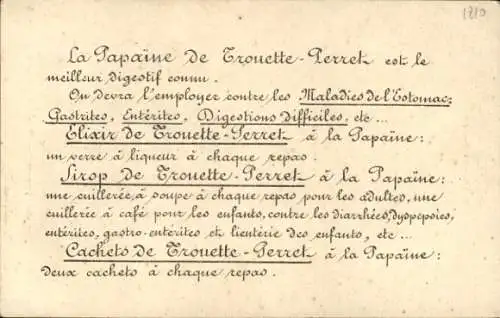 1210
La Papaïne de Trouette-Perret est le
meilleur digestif connu.
On devra l'employer contre les Maladies de l'Estomac,
Gastrites, Entérites, Digestions Difficiles, etc...
Elixir de Trouette-Perret à la Papaïne:
un verre à liqueur à chaque repas.
Sirop de Trouette-Perret à la Papaïne:
une cuillerée à soupe à chaque repas pour les adultes, une
cuillerée à café pour les enfants, contre les diarrhées, dyspepsies,
entérites, gastro-entérites et lientérie des enfants, etc...
Cachets de Trouette-Perret à la Papaïne:
deux cachets à chaque repas.